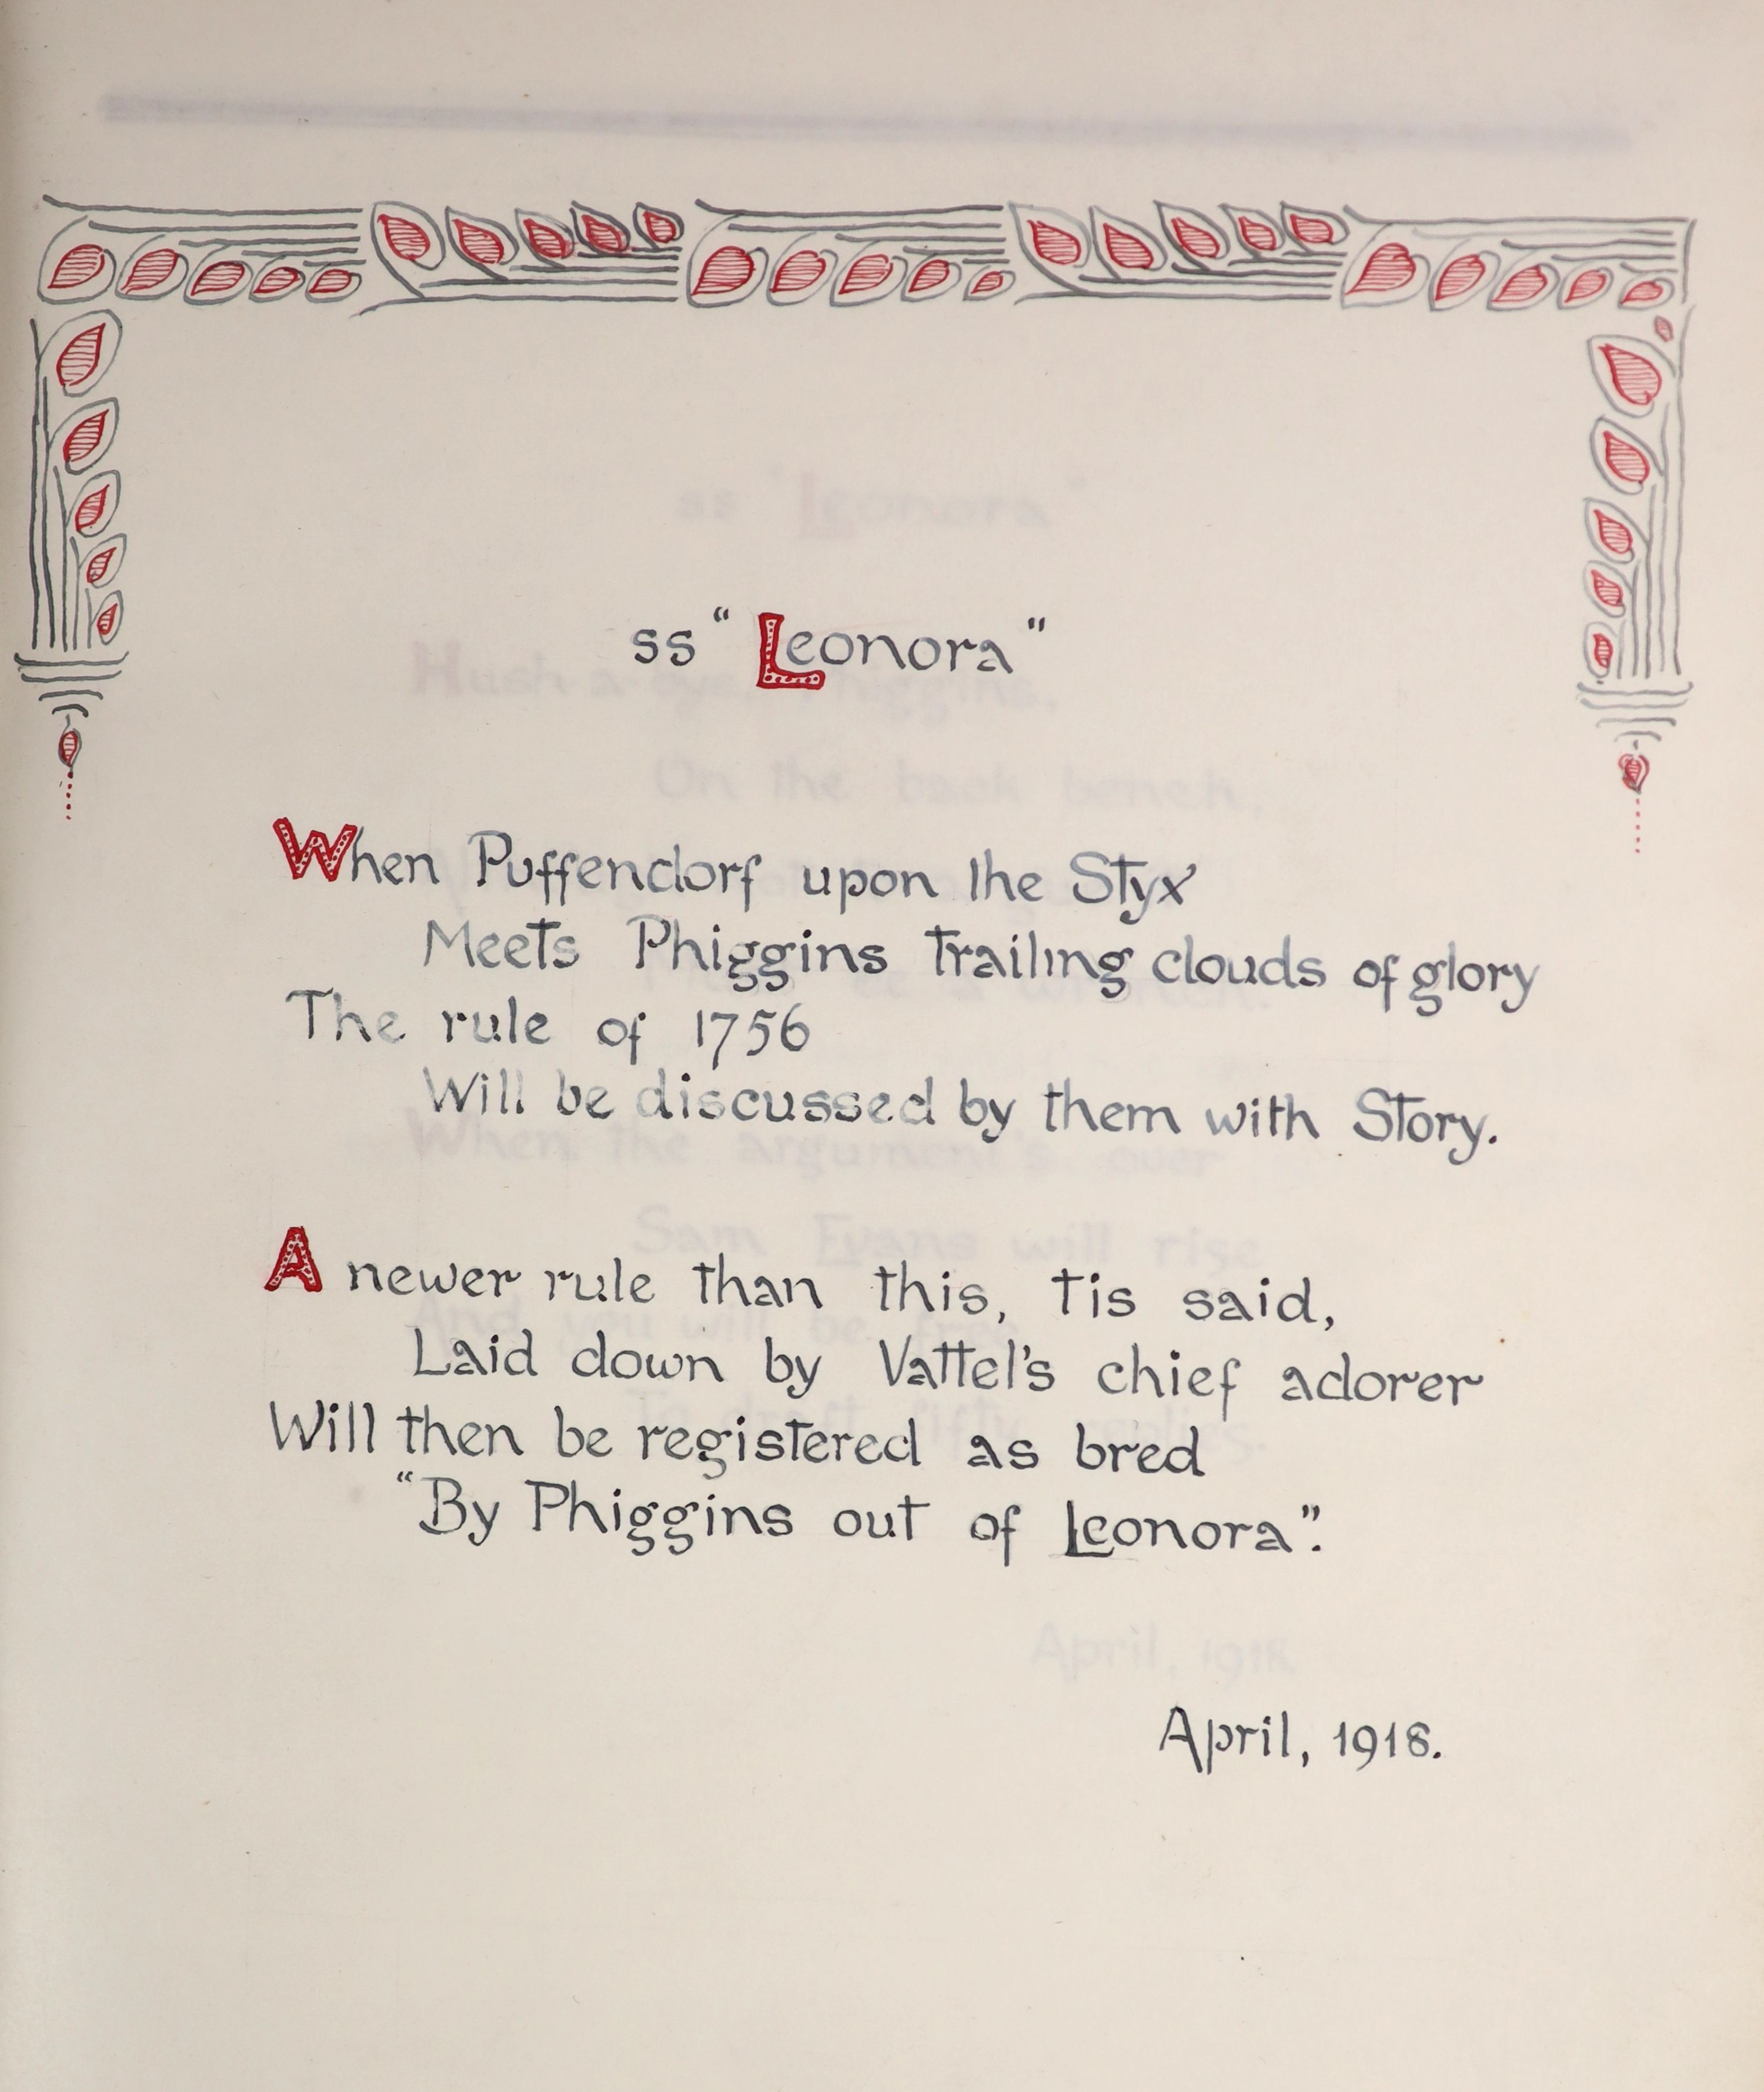 ss "Leonora"
When Puffendorf upon the Styx
Meets Phiggins trailing clouds of glory
The rule of 1756
Will be discussed by them with Story.
A newer rule than this, tis said,
Laid down by Vattel's chief adorer
Will then be registered as bred
"By Phiggins out of Leonora".
April, 1918.